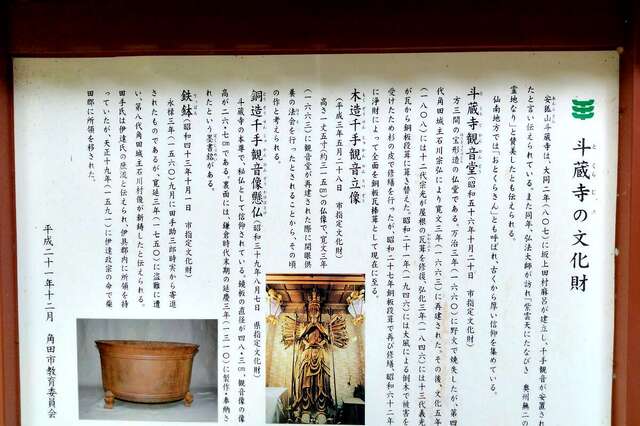 斗蔵寺の文化財
安狐山斗蔵寺は、大同二年(八〇七)に坂上田村麻呂が建立し、千手観音が安置され
たと言い伝えられている。また同年、弘法大師が訪れ「紫雲天にたなびき 奥州無二の
霊地なり」と賛美したとも伝えられる。
仙南地方では「おとくらさん」とも呼ばれ、古くから厚い信仰を集めている。
斗蔵寺観音堂(昭和五十六年十月二十日 市指定文化財)
方三間の宝形造の仏堂である。万治三年(一六六〇)に野火で焼失したが、第四
代角田城主石川宗弘により寛文三年(一六六三)に再建された。その後、文化五年
(一八〇八)には十二代宗光が屋根の瓦葺を修復、弘化三年(一八四六)には十三代義光
が瓦から銅板段葺に葺き替えた。昭和二十一年(一九四六)には大風による倒木で被害を
受けたため杉の皮で修繕を行ったが、昭和二十七年銅板段葺で再び修繕、昭和六十二年
に浄財によって全面を銅板瓦棒葺として現在に至る。
木造千手観音立像
(平成三年五月二十八日 市指定文化財)
高さ二丈五寸(約三・一五m)の仏像で、寛文三年
(一六六三)に観音堂が再建された際に開眼供
養の法会を行ったとされることから、その頃
の作と考えられる。
銅造千手観音像懸仏(昭和三十九年八月七日 県指定文化財)
斗蔵寺の本尊で、秘仏として信仰されている。鏡板の直径が四八・三㎝、観音像の像
高が二六・七㎝である。裏面には、鎌倉時代末期の延慶三年(一三一〇)に製作・奉納さ
れたという墨書銘がある。
鉄鉢(昭和四十三年十月一日 市指定文化財)
永禄三年(一五六〇)九月に田手助三郎時実から寄進
されたものであるが、寛延三年(一七五〇)に盗難に遭
い、第八代角田城主石川村俊が新鋳したと伝えられる。
田手氏は伊達氏の庶流と伝えられ、伊具郡内に所領を持
っていたが、天正十九年(一五九一)に伊達政宗の命で柴
田郡に所領を移された。
平成二十一年十二月 角田市教育委員会